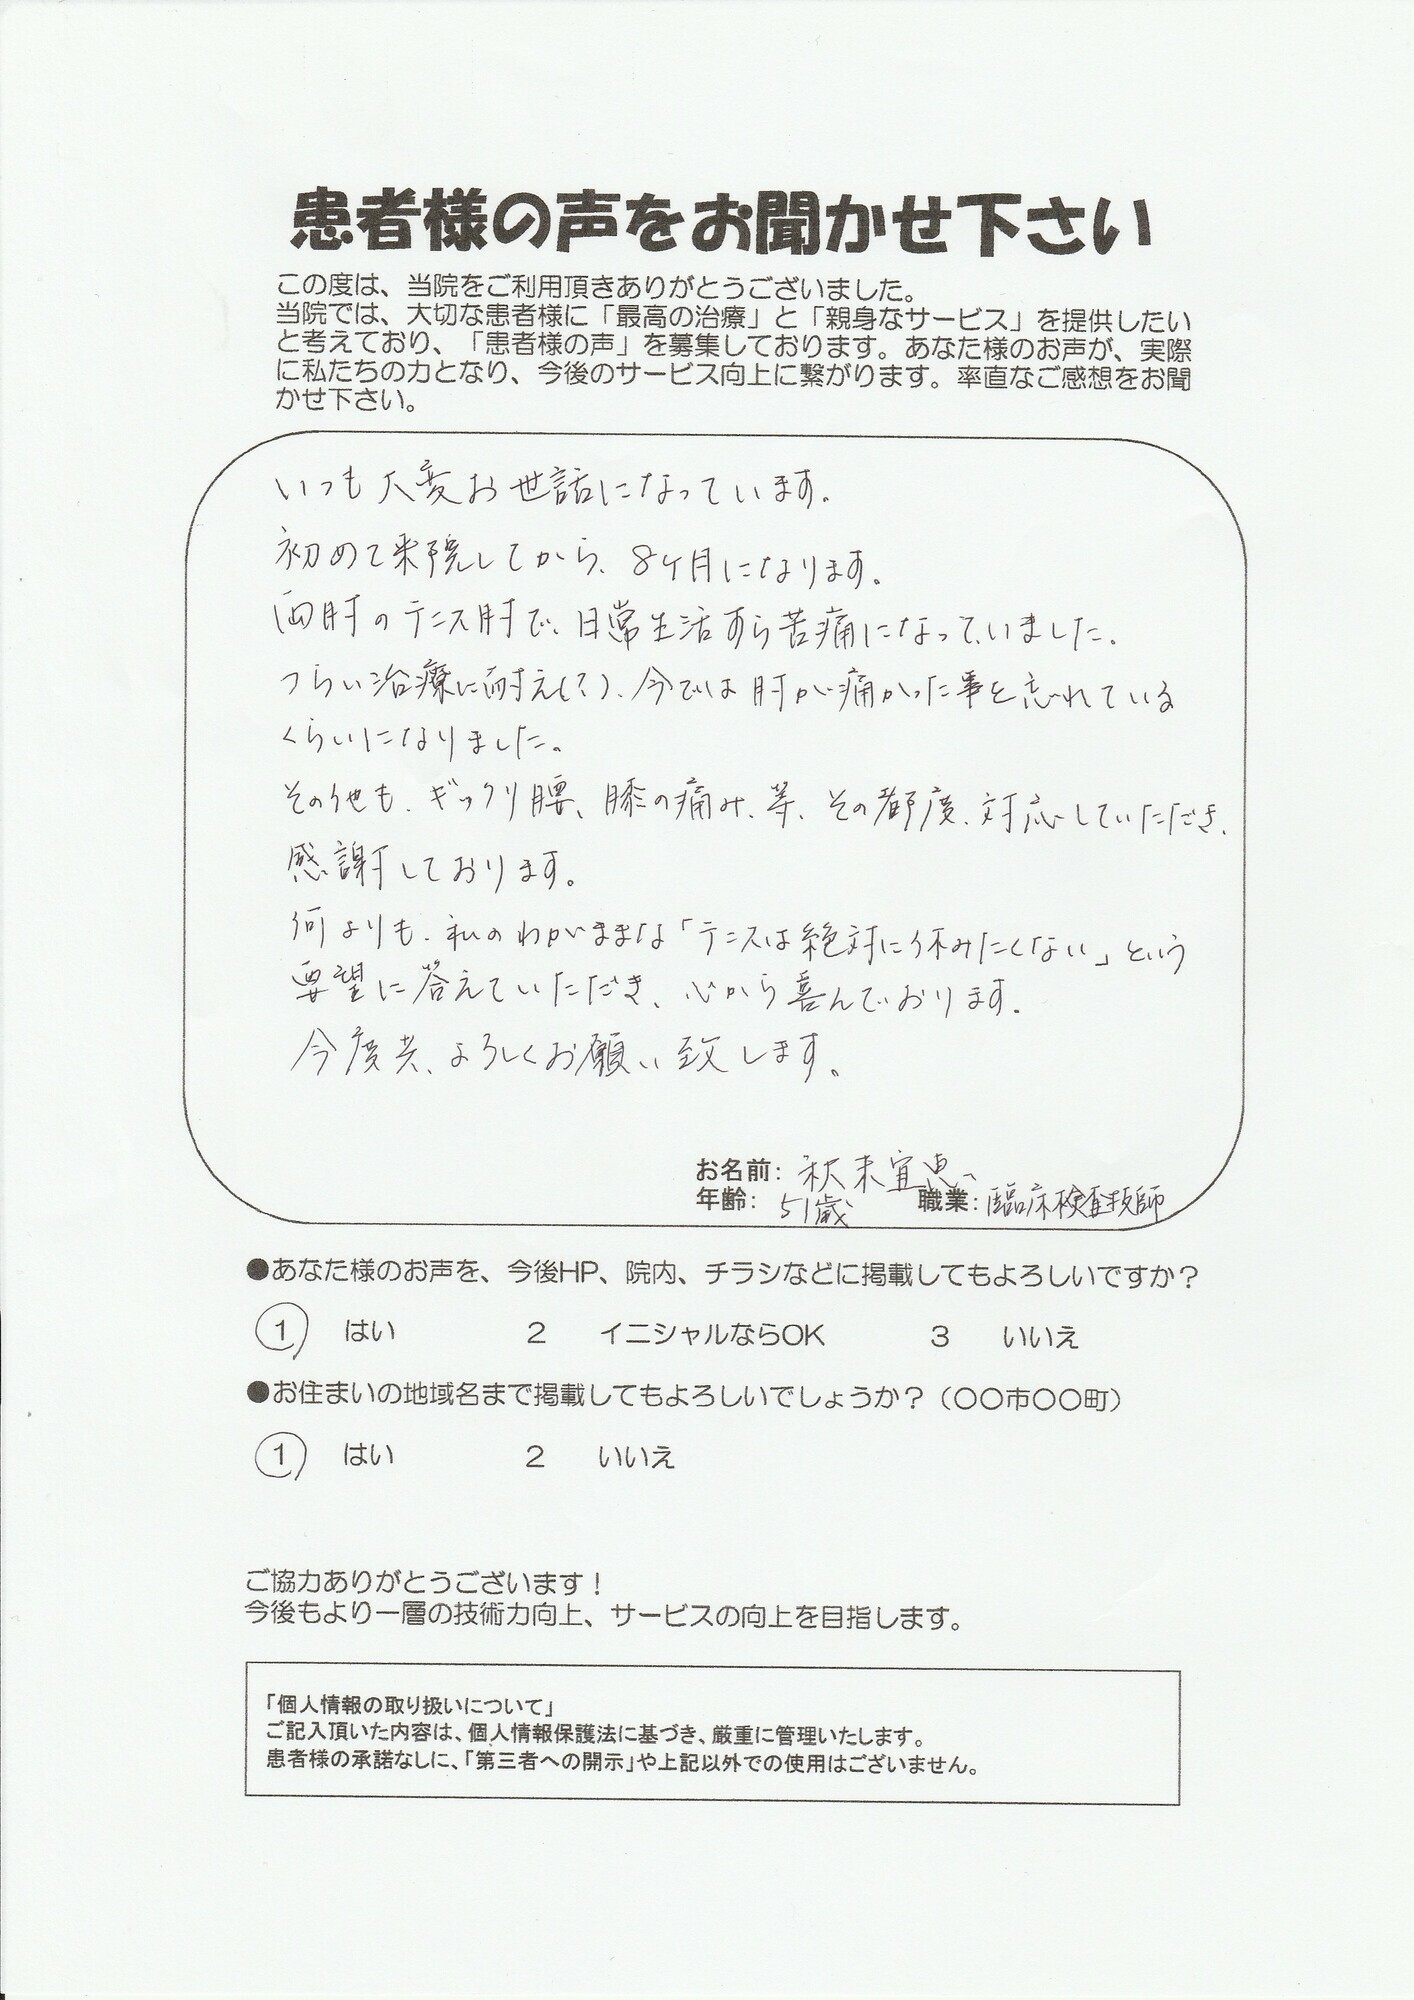 患者様の声をお聞かせ下さい
この度は、当院をご利用頂きありがとうございました。
当院では、大切な患者様に「最高の治療」と「親身なサービス」を提供したい
と考えており、「患者様の声」を募集しております。あなた様のお声が、実際
に私たちの力となり、今後のサービス向上に繋がります。率直なご感想をお聞
かせ下さい。
いつも大変お世話になっています。
初めて来院してから、8ケ月になります。
両肘のテニス肘で、日常生活すら苦痛になっていました。
つらい治療に耐え(?)、今では肘が痛かった事を忘れている
くらいになりました。
その他も、ギックリ腰、膝の痛み、等、その都度、対応していただき、
感謝しております。
何よりも、私のわがままな「テニスは絶対に休みたくない」という
要望に答えていただき、心から喜んでおります。
今度共、よろしくお願い致します。
お名前: 秋末宜恵
年齢: 51歳 職業: 臨床検査技師
●あなた様のお声を、今後HP、院内、チラシなどに掲載してもよろしいですか?
1 はい 2 イニシャルならOK 3 いいえ
●お住まいの地域名まで掲載してもよろしいでしょうか?(〇〇市〇〇町)
1 はい 2 いいえ
ご協力ありがとうございます!
今後もより一層の技術力向上、サービスの向上を目指します。
「個人情報の取り扱いについて」
ご記入頂いた内容は、個人情報保護法に基づき、厳重に管理いたします。
患者様の承諾なしに、「第三者への開示」や上記以外での使用はございません。